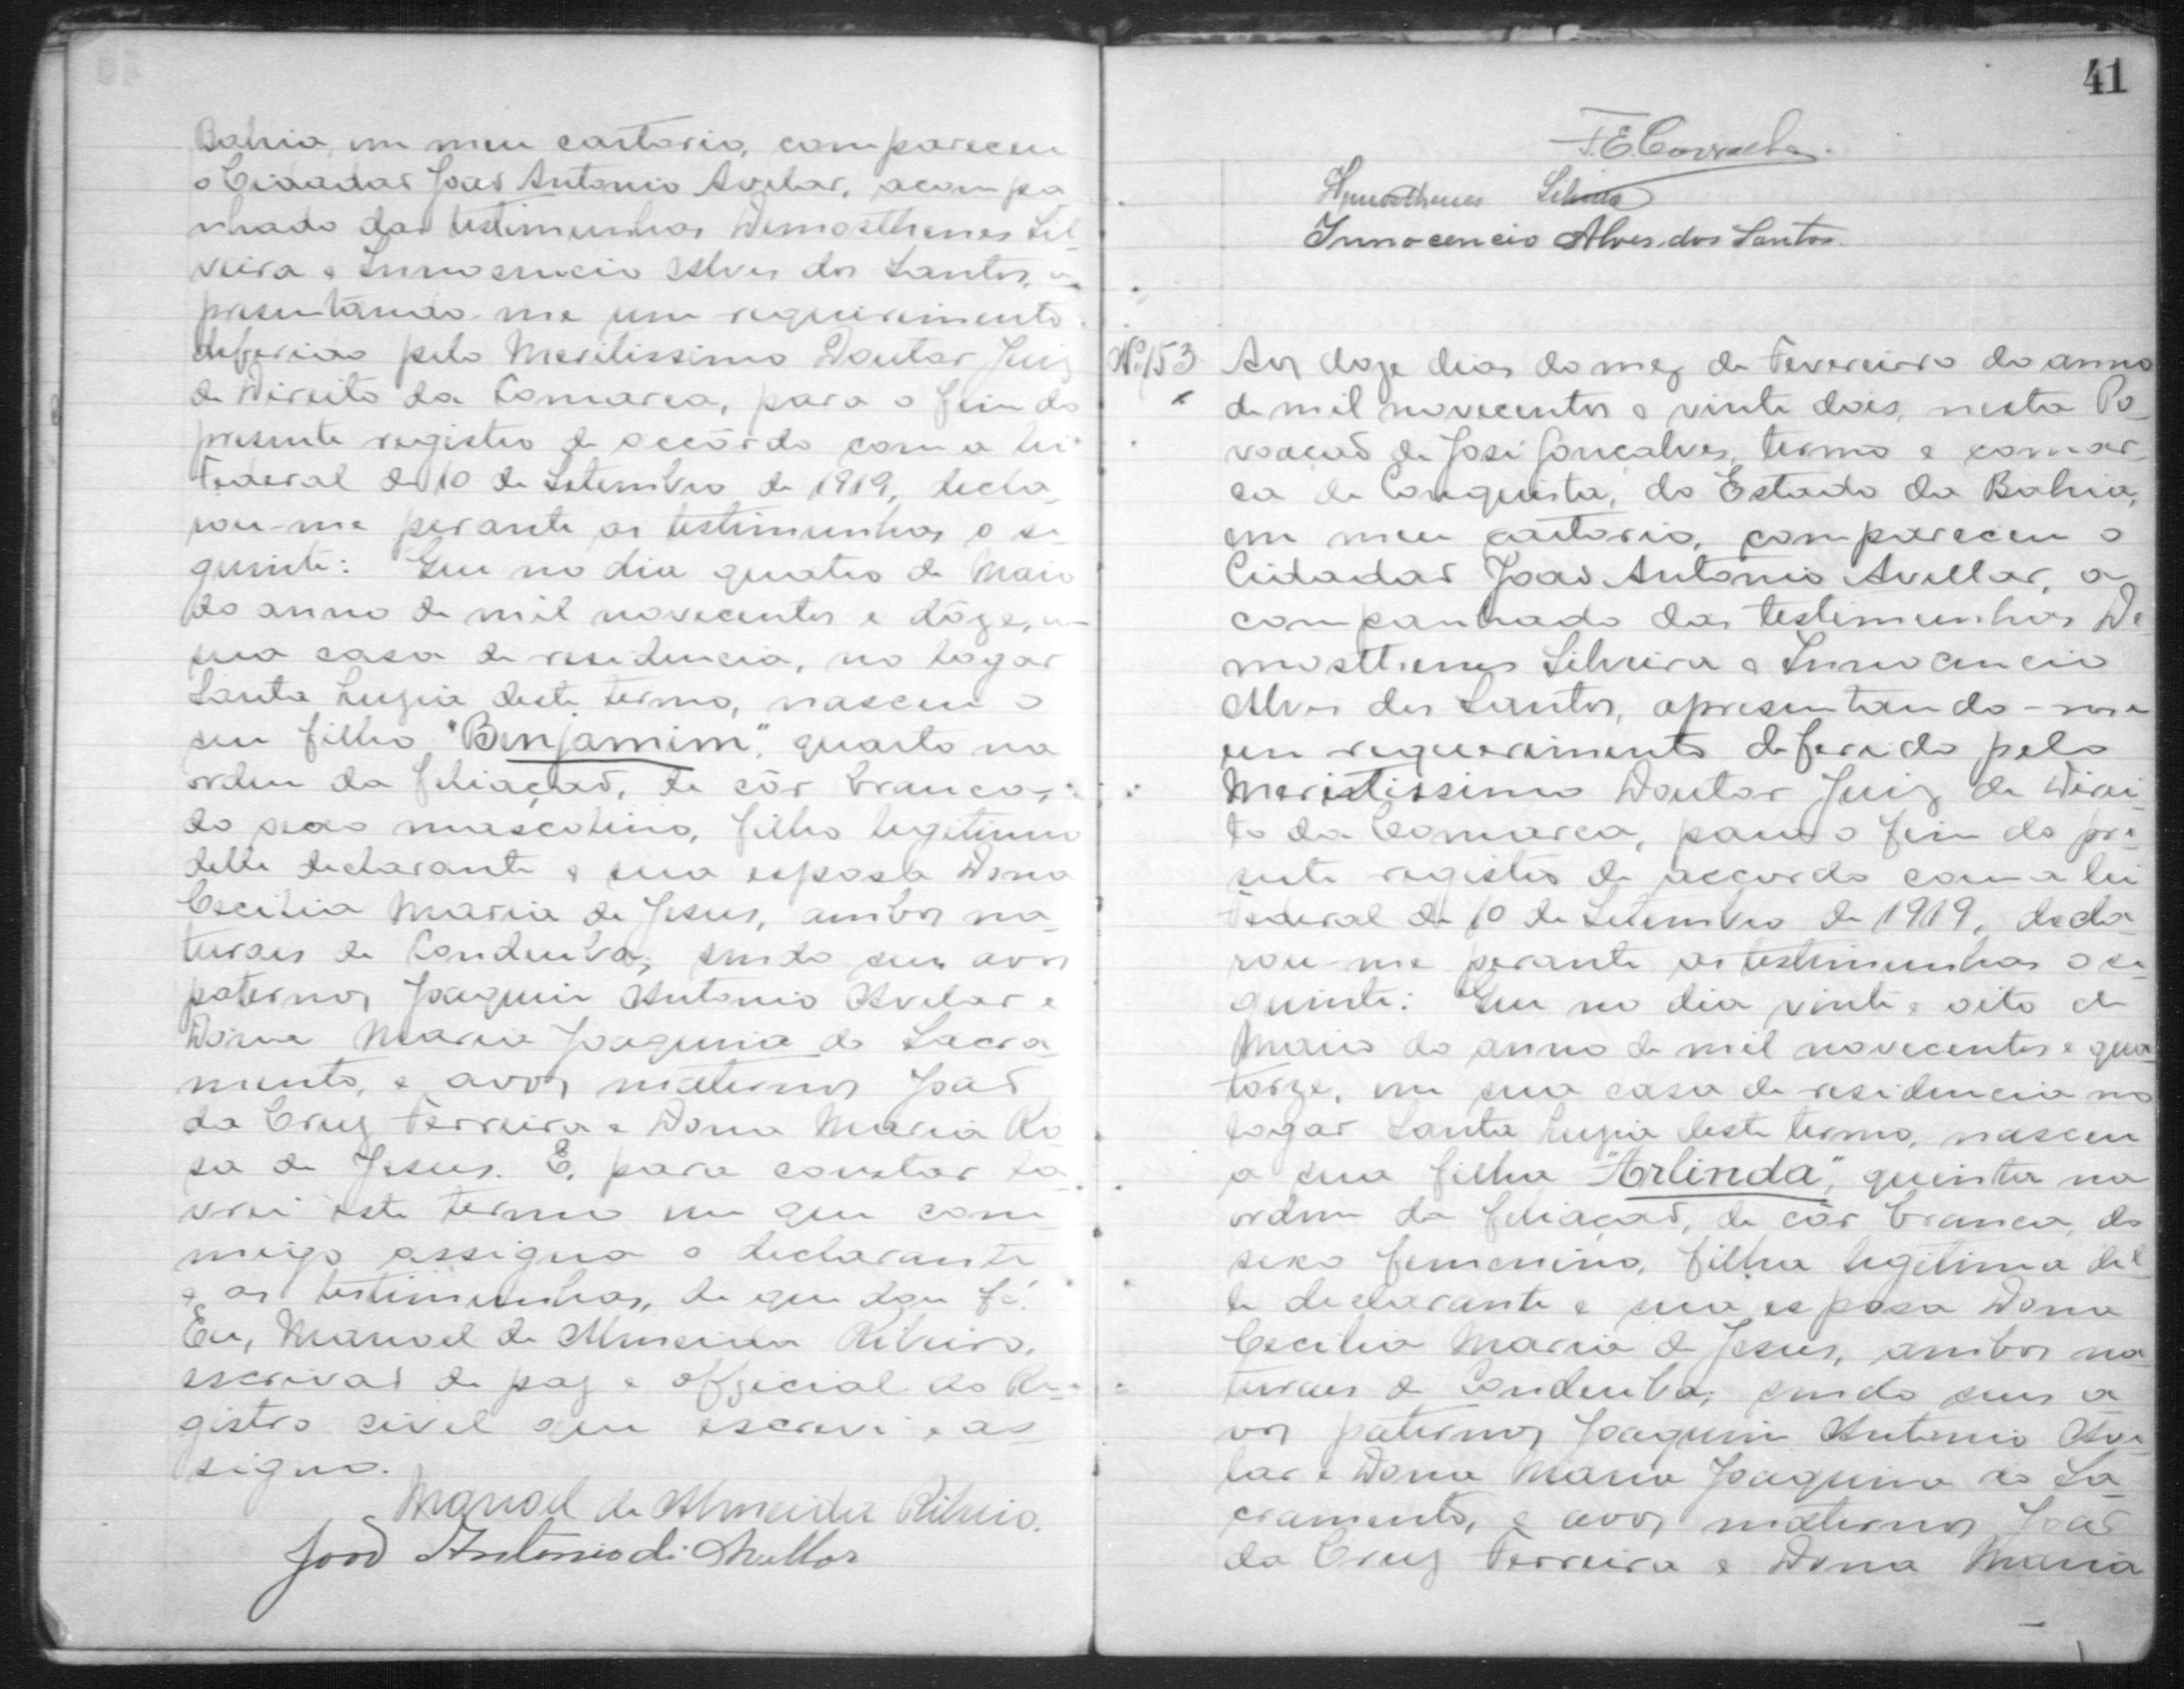 Bahia, em meu cartorio, compareceu
o Cidadão João Antonio Avelar, acompa-
nhado das testimunhas Demosthenes Sil-
veira e Innocencio Alves dos Santos, a-
presentando-me um requerimento
deferido pelo Meritissimo Doutor Juiz
de Direito da Comarca, para o fim do
presente registro de accôrdo com a lei
Federal de 10 de Setembro de 1919, decla-
rou-me perante as testimunhas o se-
guinte: Que no dia quatro de Maio
do anno de mil novecentos e dôze, em
sua casa de residencia, no logar
Santa Luzia deste termo, nasceu o
seu filho "Benjamim", quarto na
ordem da filiação, de côr branca,
do sexo mascolino, filho legitimo
delle declarante e sua esposa Dona
Cecilia Maria de Jesus, ambos na-
turaes de Condeuba; sendo seus avos
paternos Joaquim Antonio Avelar e
Dona Maria Joaquina do Sacra-
mento, e avos maternos João
da Cruz Ferreira e Dona Maria Ro-
sa de Jesus. E, para constar la-
vrei este termo em que com-
migo assigna o declarante
e as testimunhas, de que dou fé.
Eu, Manoel de Almeida Ribeiro,
escrivão de paz e official do Re-
gistro civel que escrevi e as-
signo.
Manoel de Almeida Ribeiro.
João Antonio de Avellar
41
Demosthenes Silveira
Innocencio Alves dos Santos.
Nº 153 Aos doze dias do mez de Fevereiro do anno
de mil novecentos e vinte dois, nesta Po-
voação de José Gonçalves, termo e comar-
ca de Conquista, do Estado da Bahia,
em meu cartorio, compareceu o
Cidadão João Antonio Avellar, a-
companhado das testimunhas De-
mosthenes Silveira e Innocencio
Alves dos Santos, apresentando-me
um requerimento deferido pelo
Meristissimo Doutor Juiz de Direi-
to da Comarca, para o fim do pre-
sente registro de accordo com a lei
Federal de 10 de Setembro de 1919, decla-
rou-me perante as testimunhas o se-
guinte: Que no dia vinte e oito de
Maio do anno de mil novecentos e qua-
torze, em sua casa de residencia no
logar Santa Luzia deste termo, nasceu
a sua filha "Arlinda", quinta na
ordem da filiação, de côr branca, do
sexo femenino, filha legitima del-
le declarante e sua esposa Dona
Cecilia Maria de Jesus, ambos na-
turaes de Condeuba; sendo seus a-
vos paternos Joaquim Antonio Ave-
lar e Dona Maria Joaquina do Sa-
cramento, e avos maternos João
da Cruz Ferreira e Dona Maria